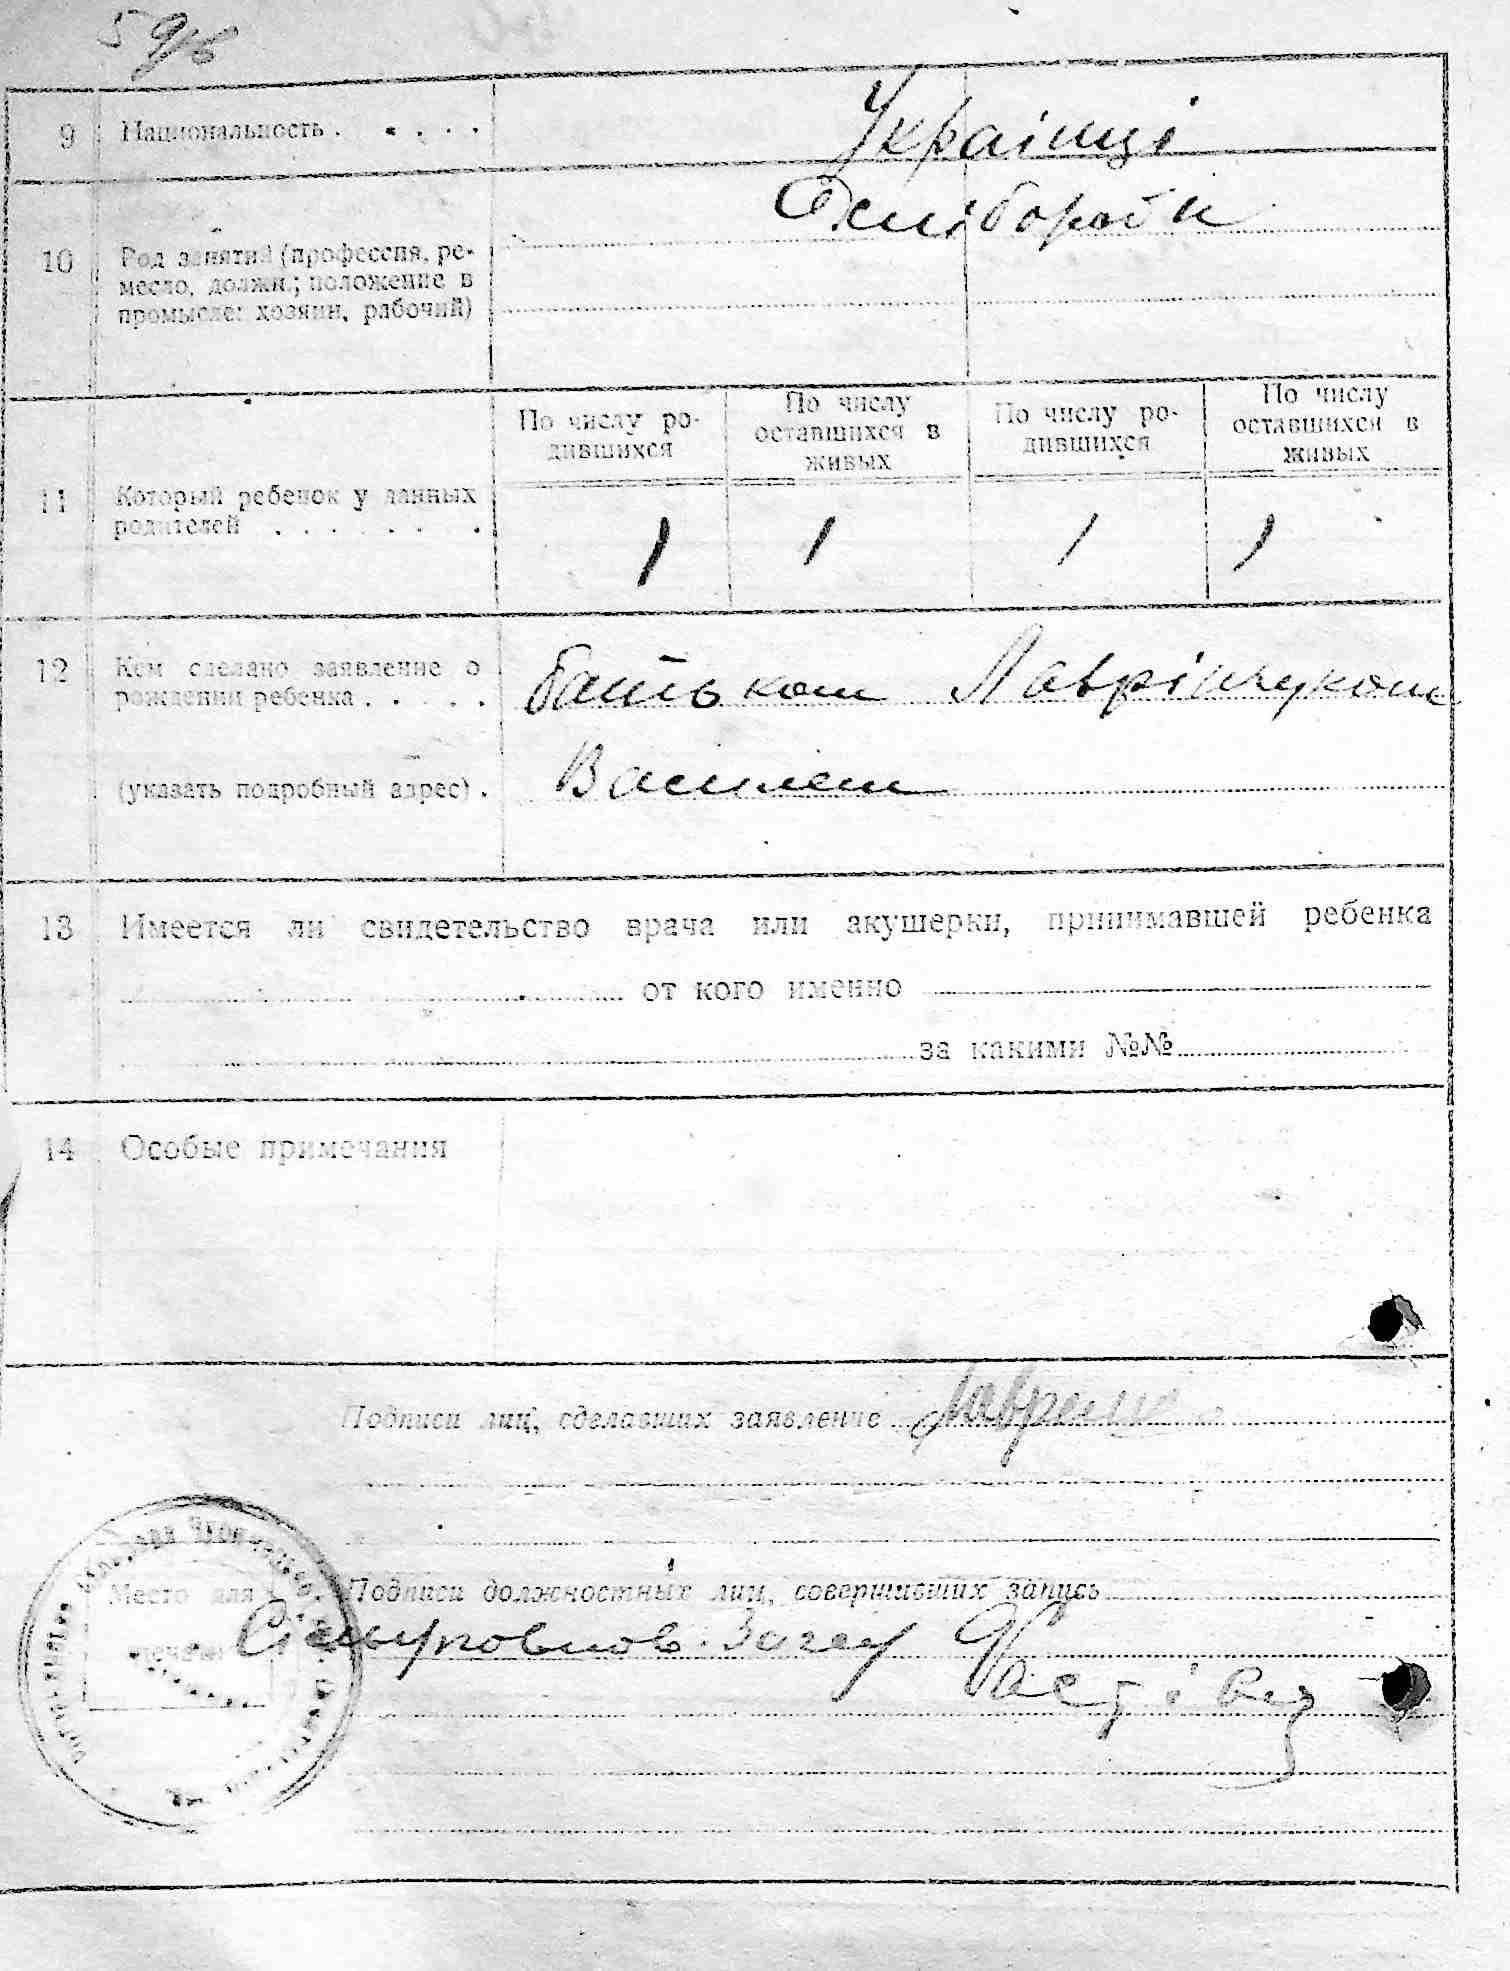 9 Национальность . . . . . Українці
Хлібороби
10 Род занятий (профессия, ре-
месло, должн.; положение в
промысле: хозяин, рабочий)
По числу ро-
дившихся
По числу
оставшихся в
живых
По числу ро-
дившихся
По числу
оставшихся в
живых
11 Который ребенок у данных
родителей . . . . . . .
1 1 1 1
12 Кем сделано заявление о
рождении ребенка . . . . .
батьком Лаврінчуком
(указать подробный адрес) .
Василем
13 Имеется ли свидетельство врача или акушерки, принимавшей ребенка
от кого именно
за какими №№
14 Особые примечания
Подписи лиц, сделавших заявление
Место для
печати
Подписи должностных лиц, совершивших запись